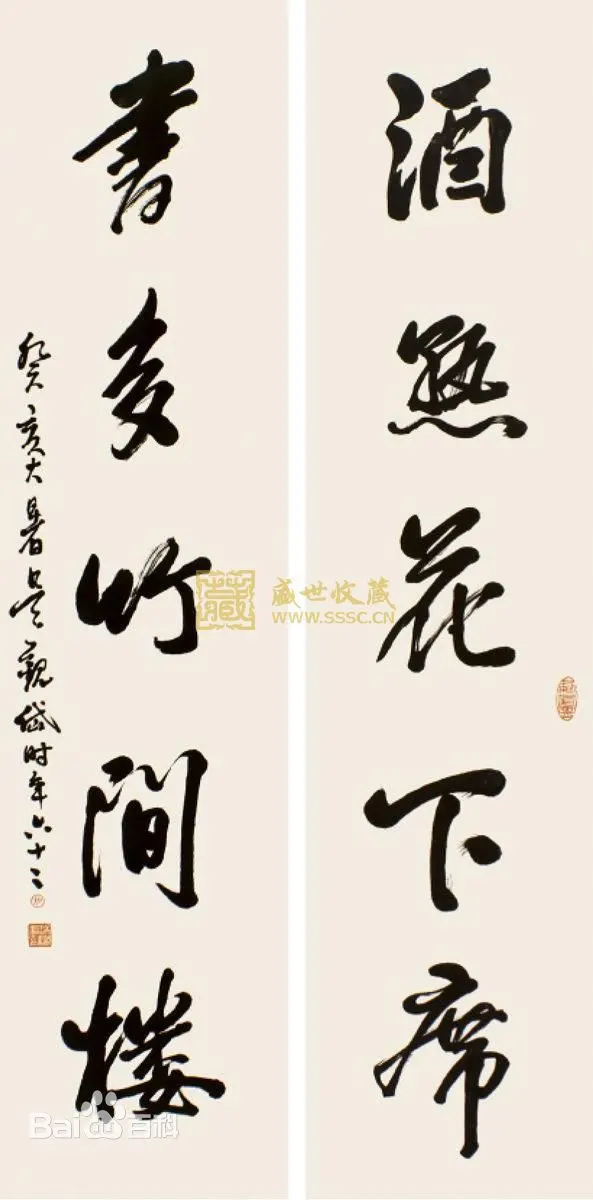 酒熟花下席
書多竹間樓
癸亥大暑吳觀岱时年六十二
藏
盛世收藏
WWW.SSSC.CN
Bai百科